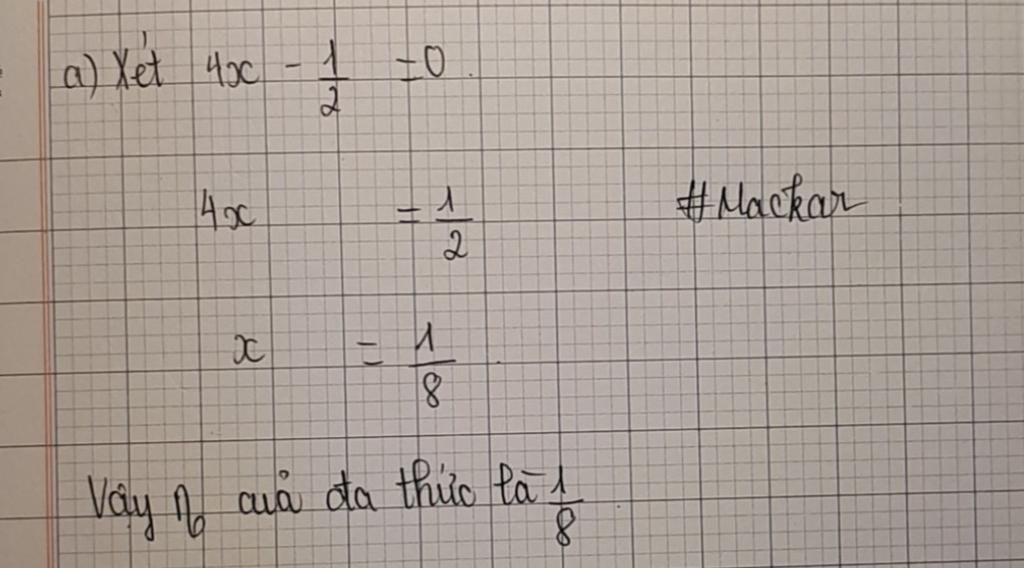 a) Xét 4x - 1/2 = 0.
4x = 1/2 #Mackar
x = 1/8.
Vậy n0 của đa thức là 1/8